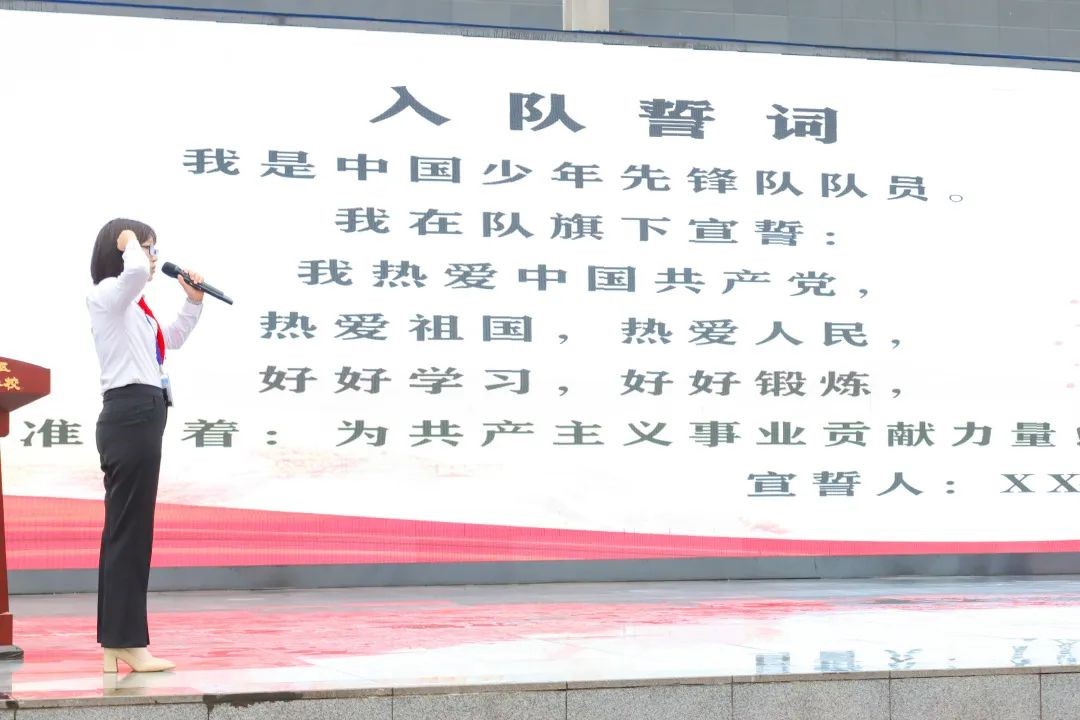 入队誓词
我是中国少年先锋队队员。
我在队旗下宣誓：
我热爱中国共产党，
热爱祖国，热爱人民，
好好学习，好好锻炼，
准 着：为共产主义事业贡献力量
宣誓人：XX
校